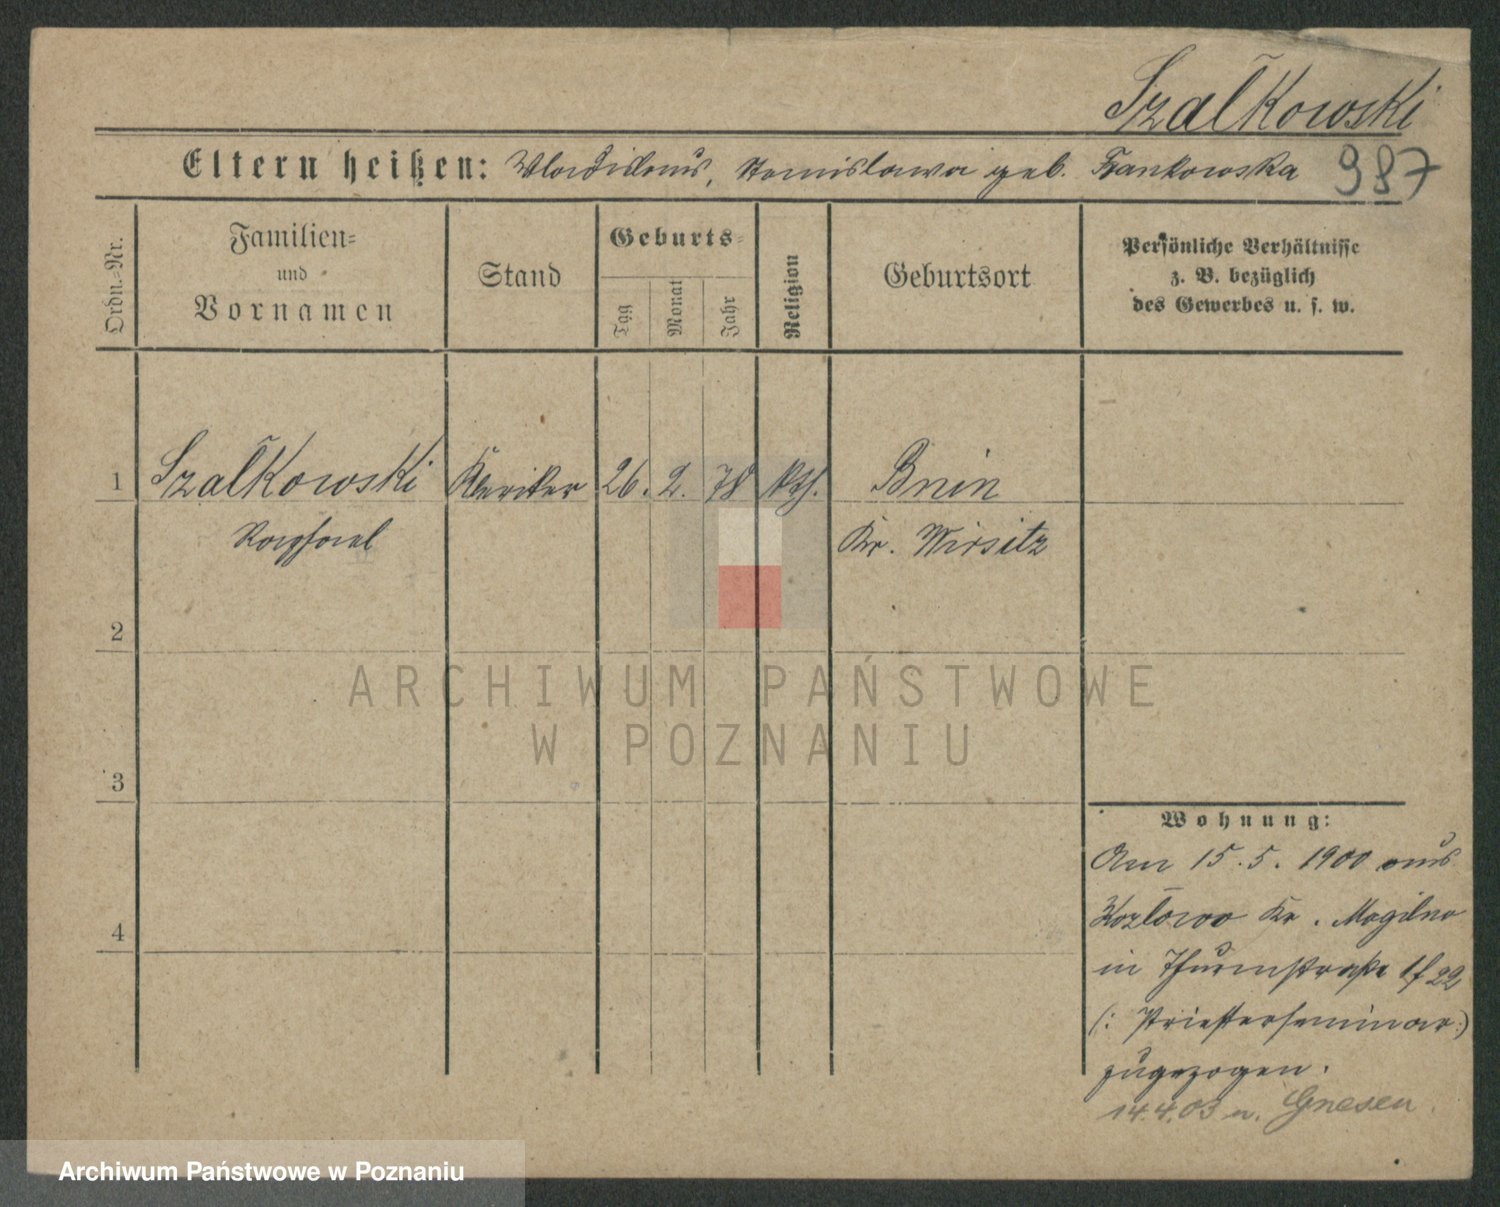 Szalkowski
Eltern heißen: Wladislaus, Stanislawa geb. Frankowska 987
Ordn.-Nr.
Familien-
und
Vornamen
Stand
Geburts-
Tag
Monat
Jahr
Religion
Geburtsort
Persönliche Verhältnisse
z. B. bezüglich
des Gewerbes u. s. w.
1 Szalkowski Kleriker 26. 2. 78 kth. Bnin
Raphael Kr. Wirsitz
2
ARCHIWUM PAŃSTWOWE
W POZNANIU
3
Wohnung:
Am 15.5.1900 aus
Kozlowo Kr. Mogilno
4
in Thurmstraße 22
(: Priesterseminar :)
zugezogen.
14.4.03 n. Gnesen.
Archiwum Państwowe w Poznaniu